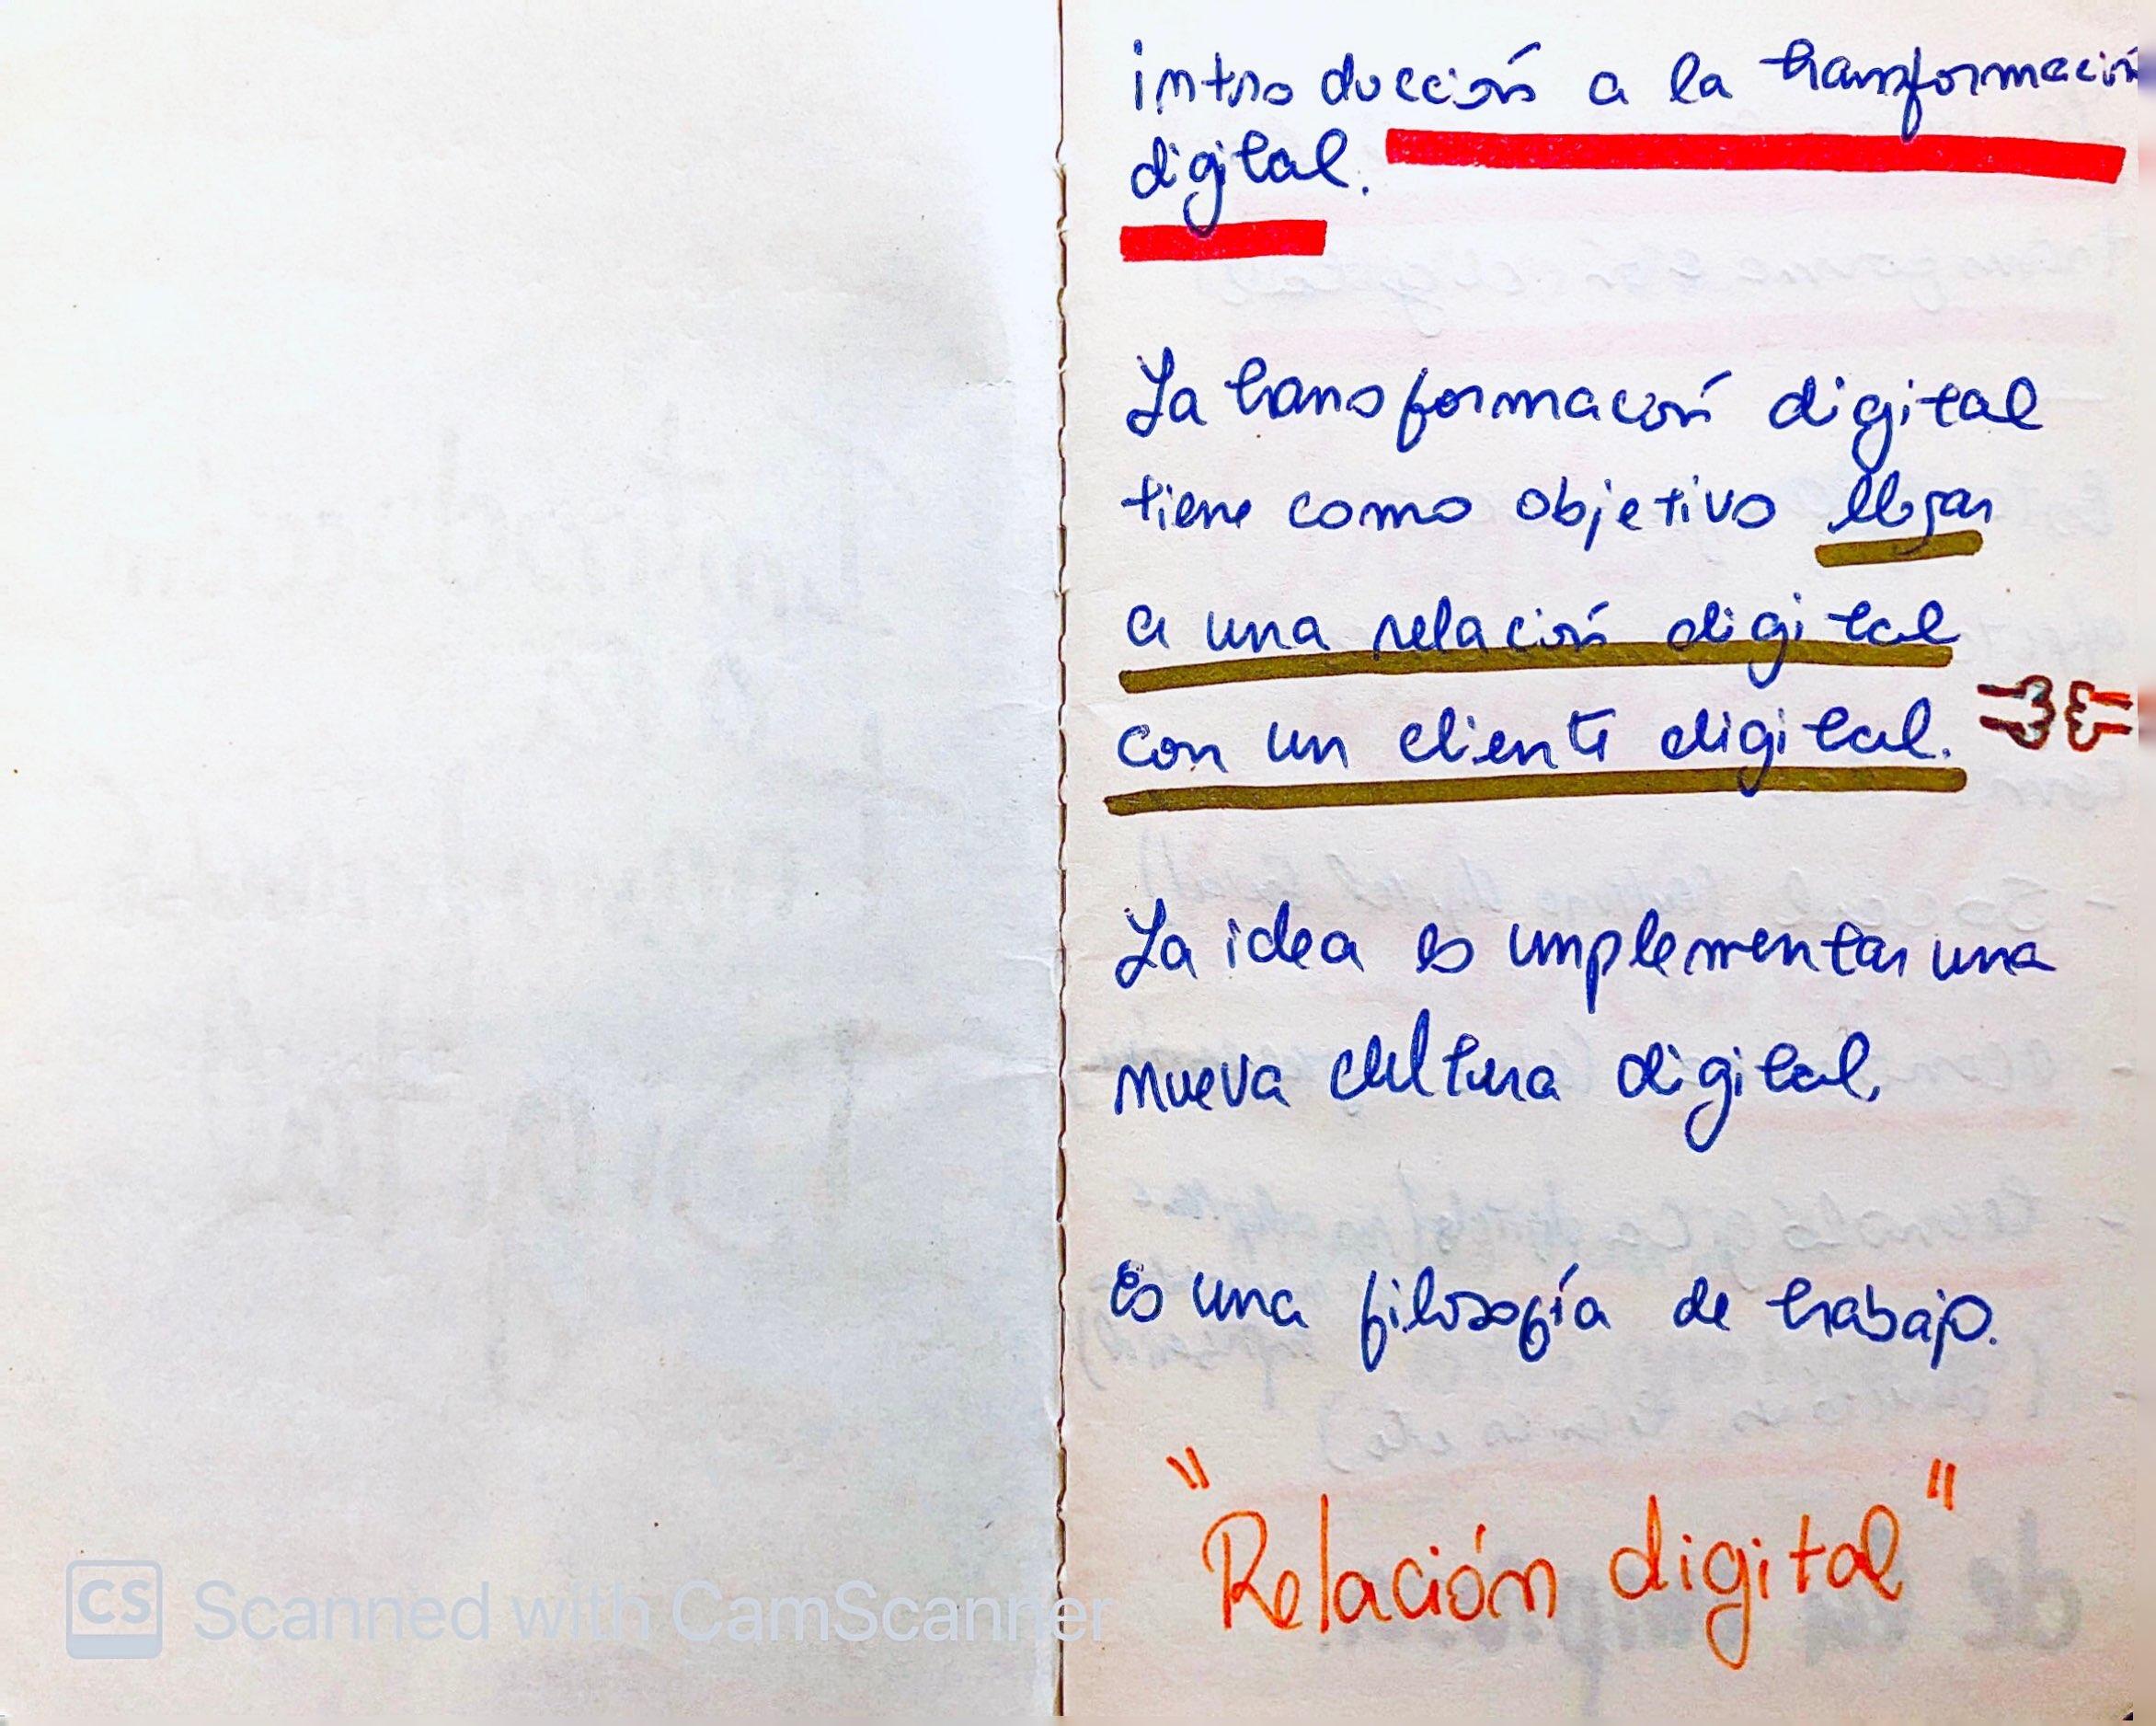 introducción a la transformación
digital.
La transformación digital
tiene como objetivo llegar
a una relación digital
con un cliente digital.
La idea es implementar una
nueva cultura digital.
Es una filosofía de trabajo.
"Relación digital"
CS Scanned with CamScanner